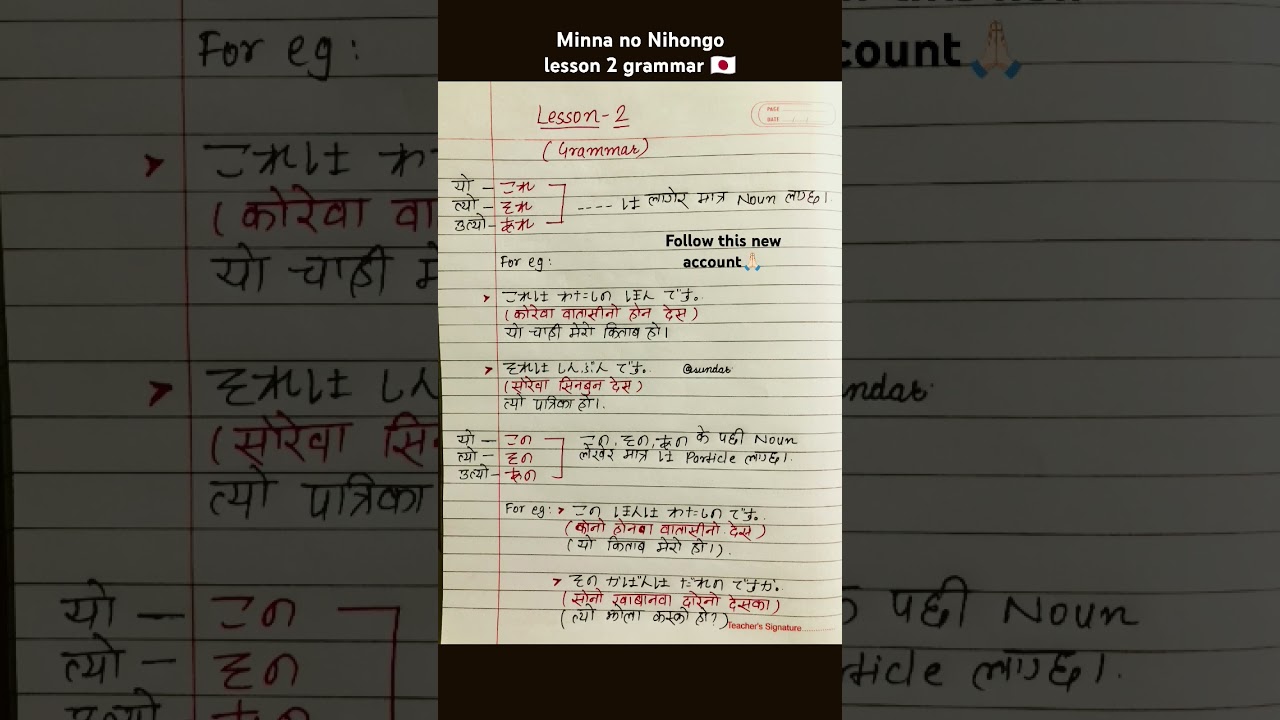 Minna no Nihongo
lesson 2 grammar 🇯🇵
PAGE
DATE
Lesson-2
(Grammar)
यो - これ
त्यो - それ
उत्यो - あれ
---- は लागेर मात्र Noun लाग्छ।
Follow this new
account🙏🏻
For eg:
➤ これは わたしの ほん です。
(कोरेवा वातासीनो होन देस)
यो चाही मेरो किताब हो।
➤ それは しんぶん です。 @sundar
(सोरेवा सिनबुन देस)
त्यो पत्रिका हो।
यो - この
त्यो - その
उत्यो - あの
この, その, あの के पछी Noun
लेखेर मात्र は Particle लाग्छ।
For eg: ➤ この ほんは わたしの です。
(कोनो होनवा वातासीनो देस)
(यो किताब मेरो हो।).
➤ その かばんは だれの ですか。
(सोनो खाबानवा दारेनो देसका)
(त्यो झोला कस्को हो?)
Teacher's Signature